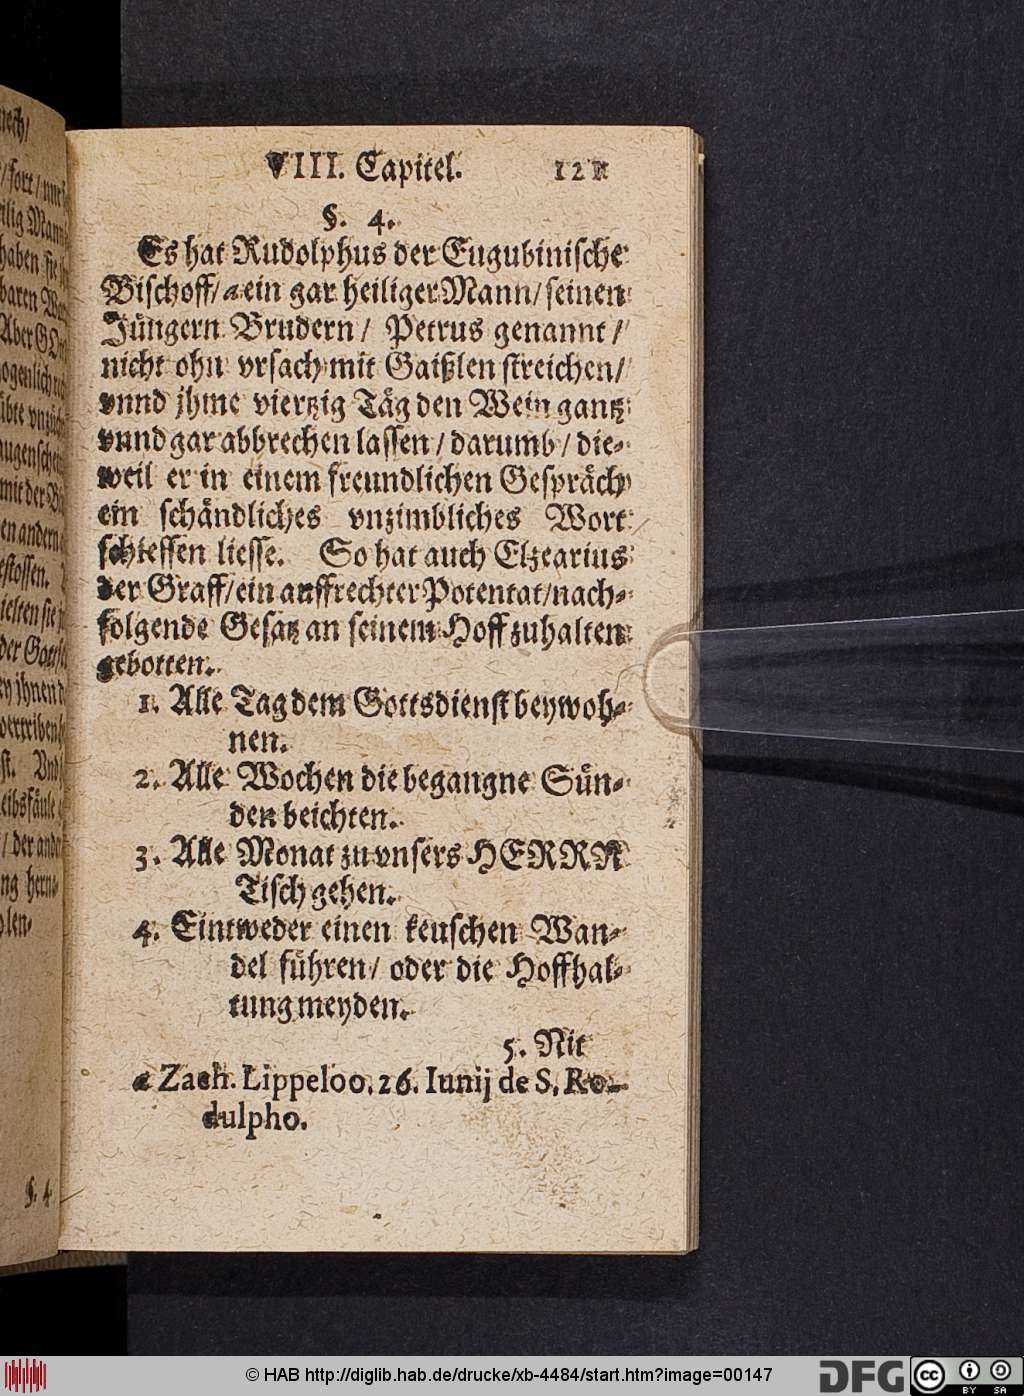 VIII. Capitel. 121
§. 4.
Es hat Rudolphus der Eugubinische
Bischoff/ a ein gar heiliger Mann/ seinen
Jüngern Brudern/ Petrus genannt/
nicht ohn vrsach mit Gaißlen streichen/
vnnd jhme viertzig Täg den Wein gantz
vnnd gar abbrechen lassen/ darumb/ die-
weil er in einem freundlichen Gespräch
ein schändliches vnzimbliches Wort
schiessen liesse. So hat auch Elzearius
der Graff/ ein auffrechter Potentat/ nach-
folgende Gesatz an seinem Hoff zuhalten
gebotten.
1. Alle Tag dem Gottsdienst beywoh-
nen.
2. Alle Wochen die begangne Sün-
den beichten.
3. Alle Monat zu vnsers HERRN
Tisch gehen.
4. Eintweder einen keuschen Wan-
del führen/ oder die Hoffhal-
tung meyden.
5. Nit
a Zach. Lippeloo. 26. Iunij de S. Ro-
dulpho.
§. 4
© HAB http://diglib.hab.de/drucke/xb-4484/start.htm?image=00147
DFG
cc
BY SA